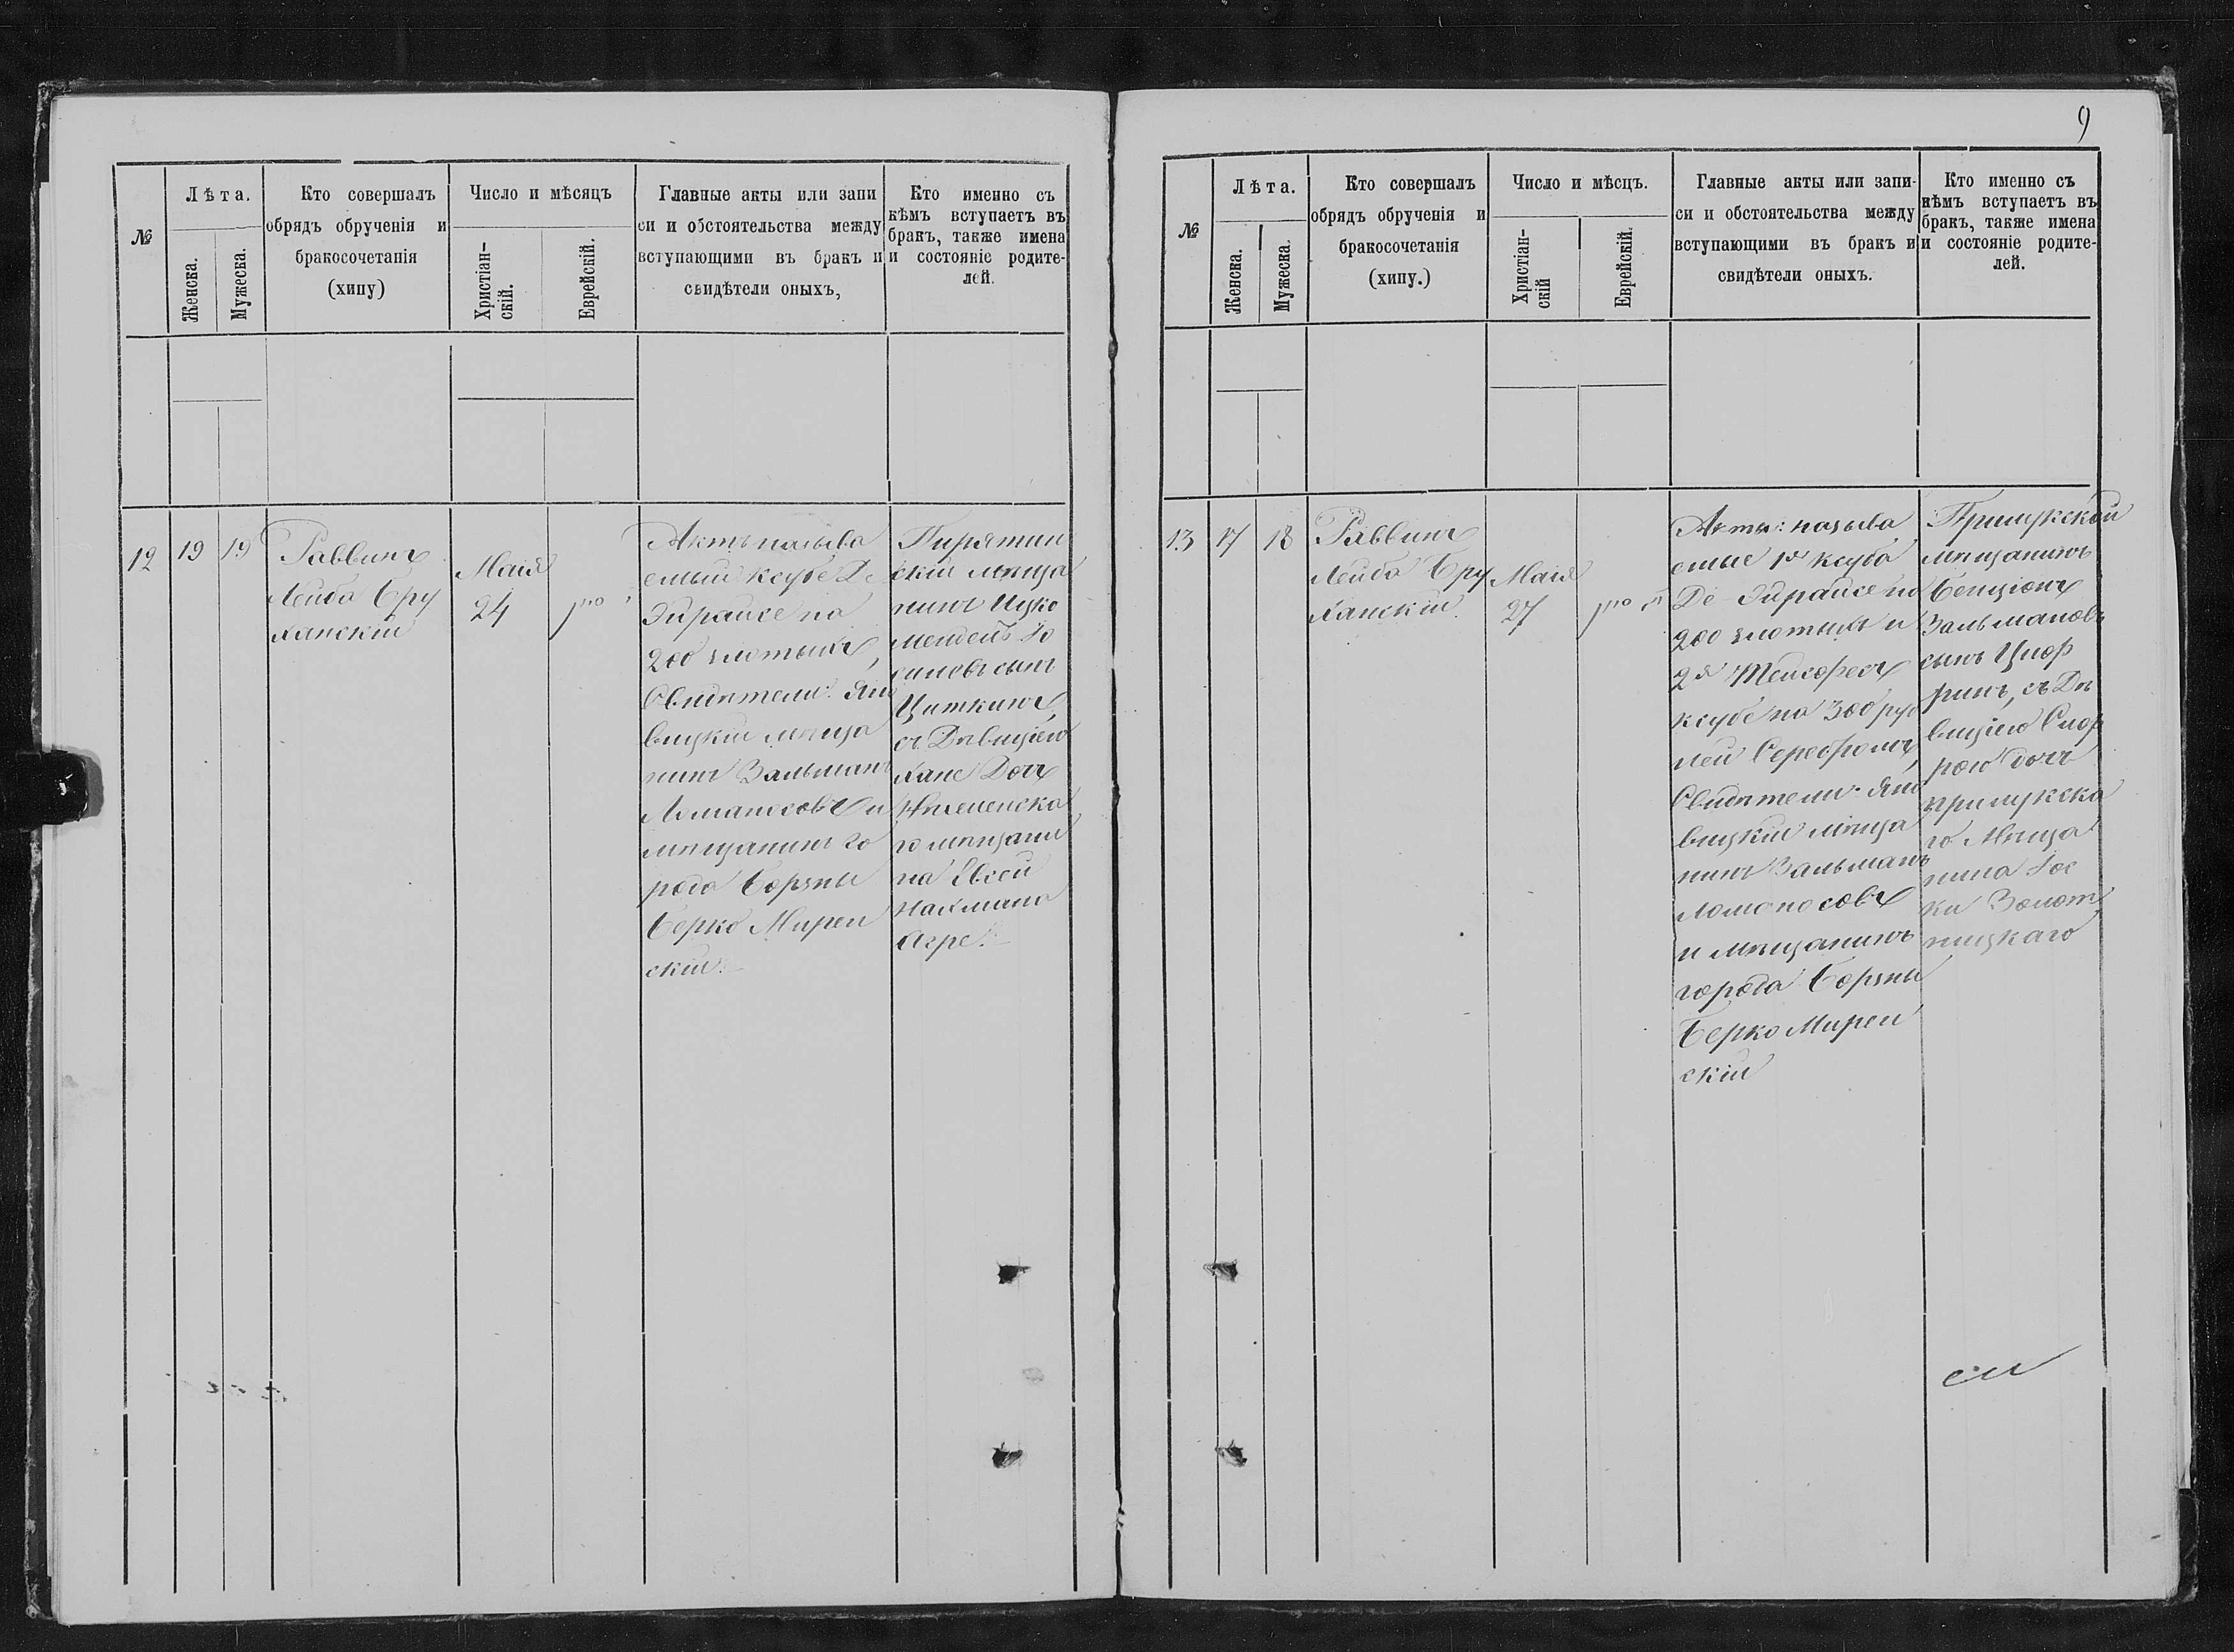 №
Лѣта.
Женска.
Мужеска.
Кто совершалъ
обрядъ обрученія и
бракосочетанія
(хипу)
Число и мѣсяцъ
Христіан-
скій.
Еврейскій.
Главные акты или запи
си и обстоятельства между
вступающими въ бракъ и
свидѣтели оныхъ,
Кто именно съ
кѣмъ вступаетъ въ
бракъ, также имена
и состояніе родите-
лей.
12
19
19
Раввинъ
Лейба Бру
ханскій
Маія
24
Актъ называ
емый ксубе Де
Эйрайсе на
200 злотыхъ,
Свидѣтели: Яно
вицкій мѣща
нинъ Зальманъ
Ломаносовъ и
мѣщанинъ го
рода Борзны
Берко Мирен
скій.
Пирятин
скій мѣща
нинъ Ицко
Мендель Іо
синовъ сынъ
Циткинъ,
съ Дѣвицею
Хане Дочь
Нѣженска
го мѣщани
на Евсей
Нахмана
Агре
9
№
Лѣта.
Женска.
Мужеска.
Кто совершалъ
обрядъ обрученія и
бракосочетанія
(хипу.)
Число и мѣсцъ.
Христіан-
скій
Еврейскій.
Главные акты или запи-
си и обстоятельства между
вступающими въ бракъ и
свидѣтели оныхъ.
Кто именно съ
кѣмъ вступаетъ въ
бракъ, также имена
и состояніе родите-
лей.
13
17
18
Раввинъ
Лейба Бру
ханскій.
Маія
27
Акты: называ
емые 1й ксуба
Де-Эйрайсе на
200 злотыхъ и
2й Тейсофесъ
ксубе на 300 руб
лей Серебромъ,
Свидѣтели: Яно
вицкій мѣща
нинъ Зальманъ
Ломоносовъ
и мѣщанинъ
города Борзны
Берко Мирен
скій
Прилукской
мѣщанинъ
Бенціонъ
Зальмановъ
сынъ Циф
ринъ, съ Дѣ
вицею Сиф
рою дочь
прилукска
го Мѣща
нина Іос
ки Золот
ницкаго